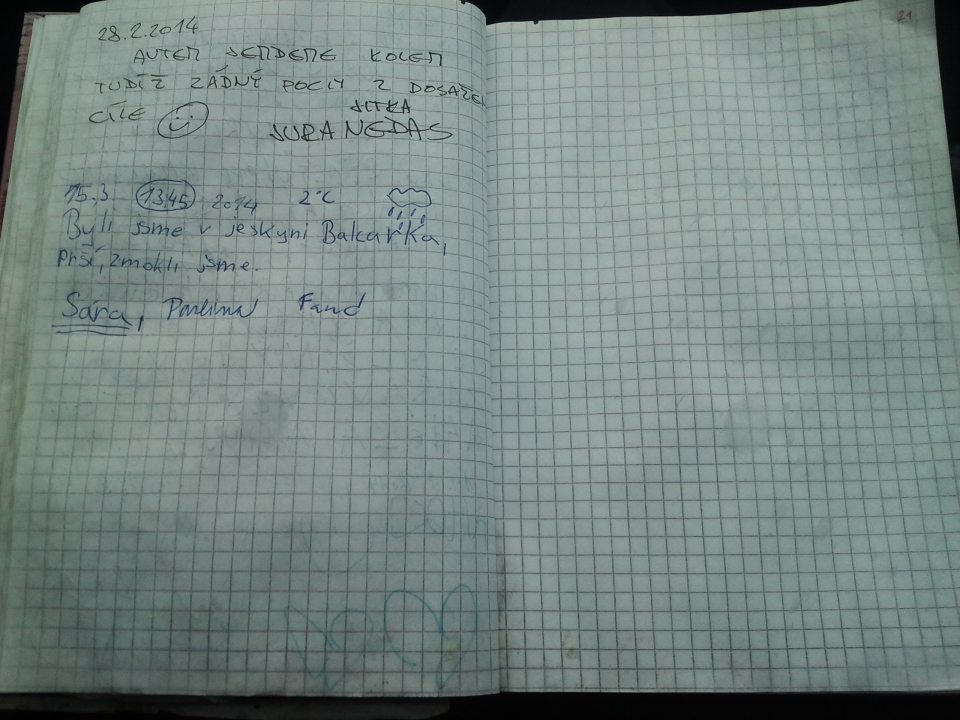 21
28.2.2014
AUTEM JEDEME KOLEM
TUDÍŽ ŽÁDNÝ POCIT Z DOSAŽE
CÍLE
JITKA
JURA NEDAS
15.3. 13:45 2014 2°C
Byli jsme v jeskyni Balcarka,
Prší, zmokli jsme.
Sára, Pavlína